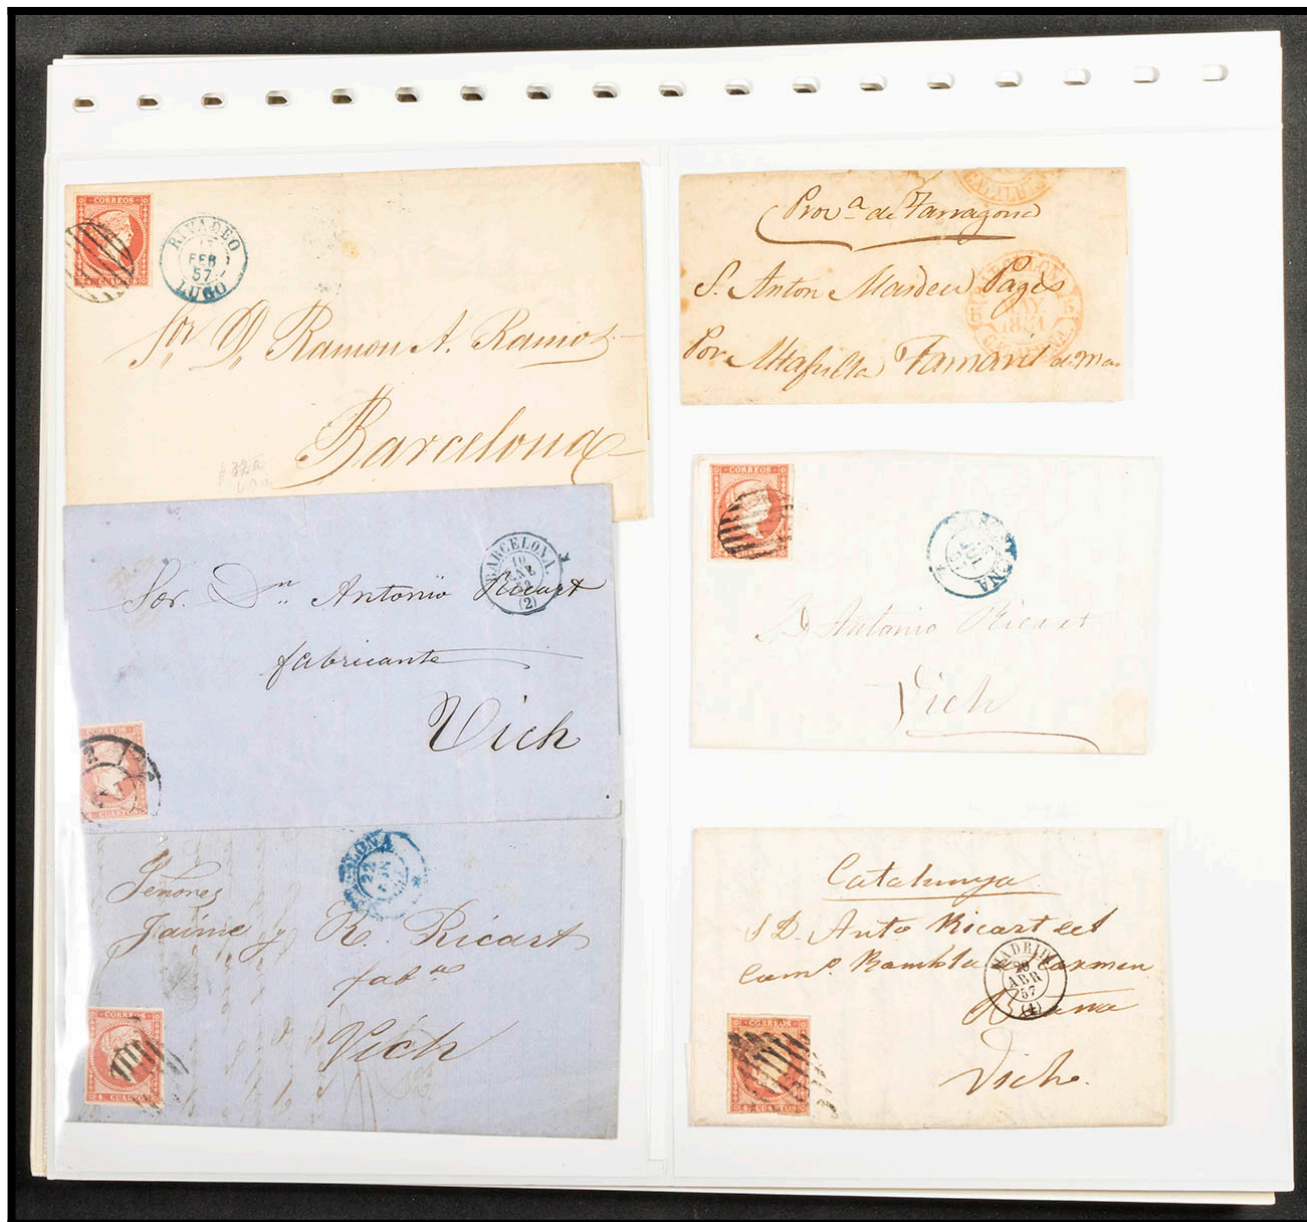 CORREOS
RIVADEO
17
FEB
57
LUGO
Sor D. Ramon A. Ramos
Barcelona
BARCELONA.
10
ENE
58
(2)
Sor. Dn. Antonio Ricart
fabricante
Vich
CUARTOS
22
Señores
Jaime y R. Ricart
fabte
Vich
CORREOS
4 CUARTOS
Prova de Tarragona
BARCELONA
S. Anton Mardeu Pagés
1851
CATALUÑA
Por Altafulla Tamarit de Mar
CORREOS
D Antonio Ricart
Vich
Catalunya
S D. Anto Ricart del
Comº Rambla Carmen
MADRID
20
ABR
57
(1)
Vich.
CORREOS
4 CUARTOS